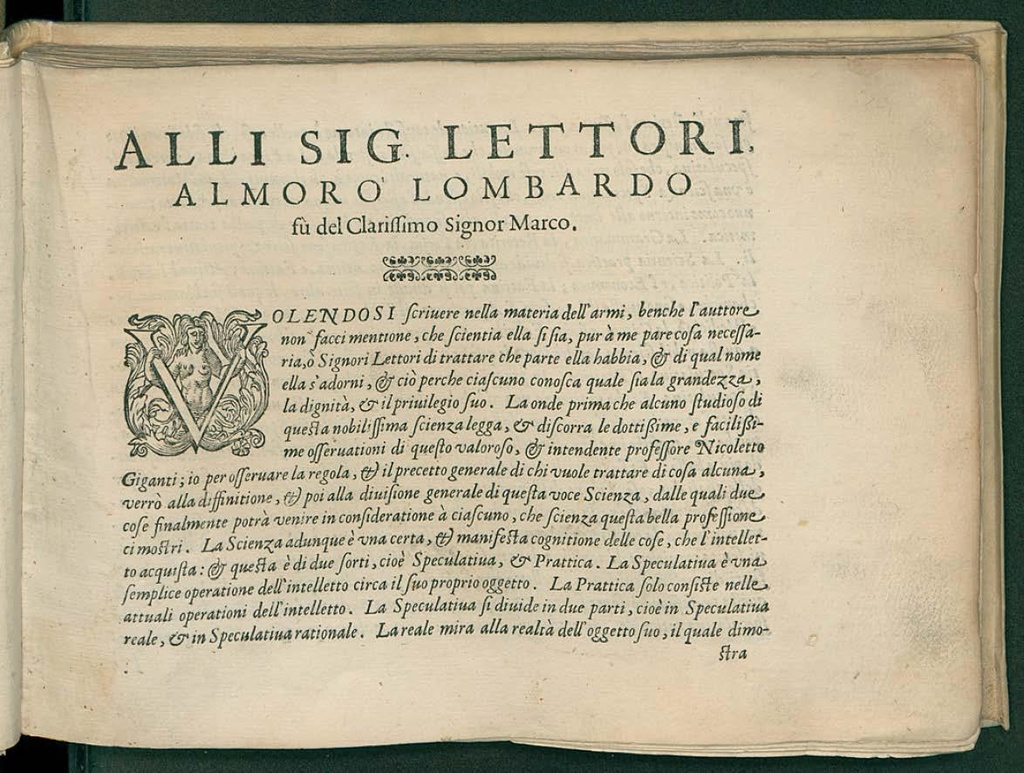 ALLI SIG. LETTORI,
ALMORO' LOMBARDO
fù del Clarissimo Signor Marco.
VOLENDOSI scriuere nella materia dell'armi, benche l'auttore
non facci mentione, che scientia ella si sia, pur à me pare cosa necessa-
ria, ò Signori Lettori di trattare che parte ella habbia, & di qual nome
ella s'adorni, & ciò perche ciascuno conosca quale sia la grandezza,
la dignità, & il priuilegio suo. La onde prima che alcuno studioso di
questa nobilissima scienza legga, & discorra le dottißime, e facilißi-
me osseruationi di questo valoroso, & intendente professore Nicoletto
Giganti; io per osseruare la regola, & il precetto generale di chi vuole trattare di cosa alcuna,
verrò alla diffinitione, & poi alla diuisione generale di questa voce Scienza, dalle quali due
cose finalmente potrà venire in consideratione à ciascuno, che scienza questa bella professione
ci mostri. La Scienza adunque è vna certa, & manifesta cognitione delle cose, che l'intellet-
to acquista: & questa è di due sorti, cioè Speculatiua, & Prattica. La Speculatiua è vna
semplice operatione dell'intelletto circa il suo proprio oggetto. La Prattica solo consiste nelle
attuali operationi dell'intelletto. La Speculatiua si diuide in due parti, cioè in Speculatiua
reale, & in Speculatiua rationale. La reale mira alla realtà dell'oggetto suo, il quale dimo-
stra